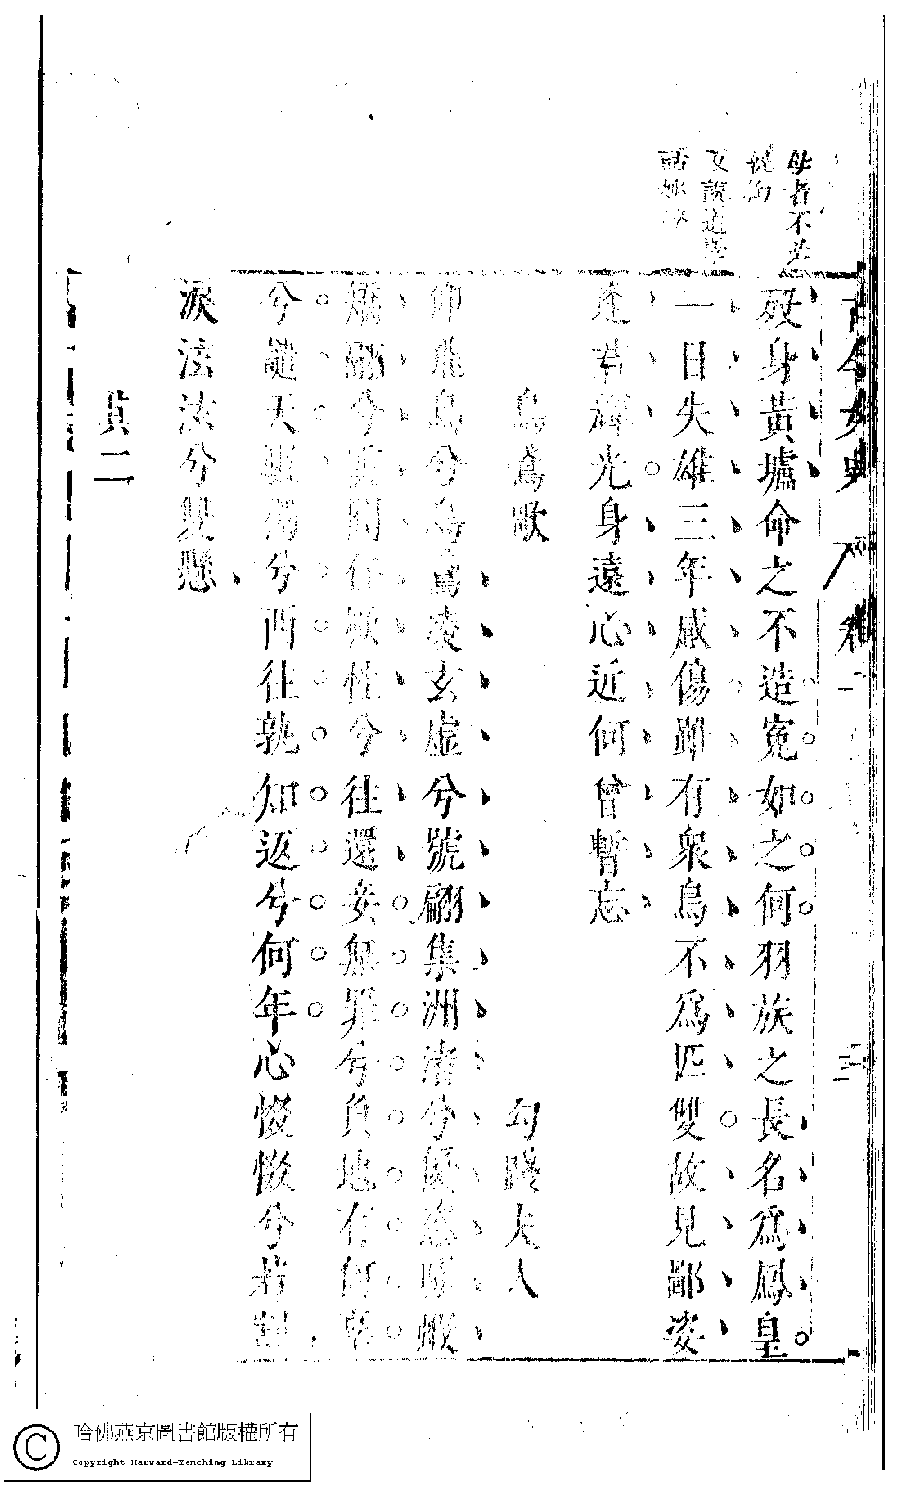 母者不
歿身黃壚命之不造寃如之何羽族之長名爲鳳皇
一日失雄三年感傷雖有衆鳥不爲匹雙故見鄙姿
逢君輝光身遠心近何曾暫忘
烏鳶歌
勾踐夫人
仰飛鳥兮烏鳶凌玄虛兮號翩集洲渚兮優恣啄蝦
矯翮兮雲間任厥性兮往還妾無罪兮負地有何辜
兮譴天颿颿兮西往孰知返兮何年心惙惙兮若割
淚泫泫兮雙懸
其二
古今女史
卷二
三
哈佛燕京圖書館版權所有
Copyright Harvard-Yenching Library